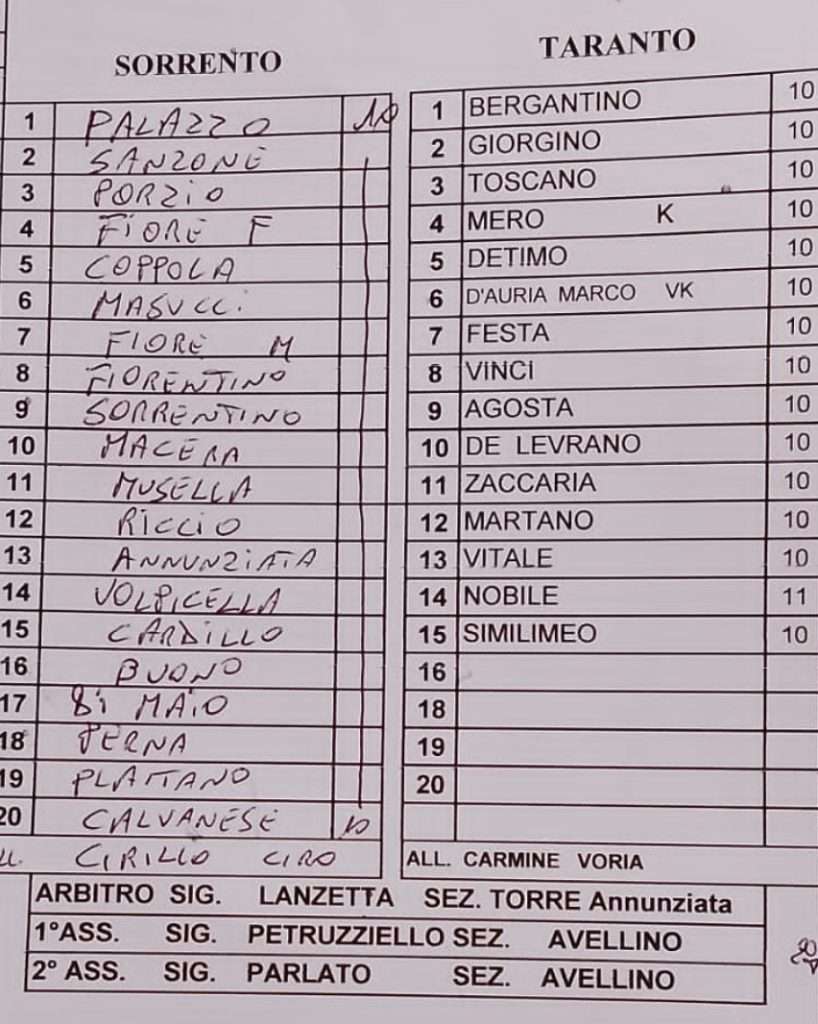 SORRENTO
1 PALAZZO 10
2 SANZONE
3 PORZIO
4 FIORE F
5 COPPOLA
6 MASUCCI
7 FIORE M
8 FIORENTINO
9 SORRENTINO
10 MACERA
11 MUSELLA
12 RICCIO
13 ANNUNZIATA
14 VOLPICELLA
15 CARDILLO
16 BUONO
17 Di MAIO
18 PERNA
19 PLAITANO
20 CALVANESE 10
CIRILLO CIRO
TARANTO
1 BERGANTINO 10
2 GIORGINO 10
3 TOSCANO 10
4 MERO K 10
5 DETIMO 10
6 D'AURIA MARCO VK 10
7 FESTA 10
8 VINCI 10
9 AGOSTA 10
10 DE LEVRANO 10
11 ZACCARIA 10
12 MARTANO 10
13 VITALE 10
14 NOBILE 11
15 SIMILIMEO 10
16
18
19
20
ALL. CARMINE VORIA
ARBITRO SIG. LANZETTA SEZ. TORRE Annunziata
1°ASS. SIG. PETRUZZIELLO SEZ. AVELLINO
2° ASS. SIG. PARLATO SEZ. AVELLINO